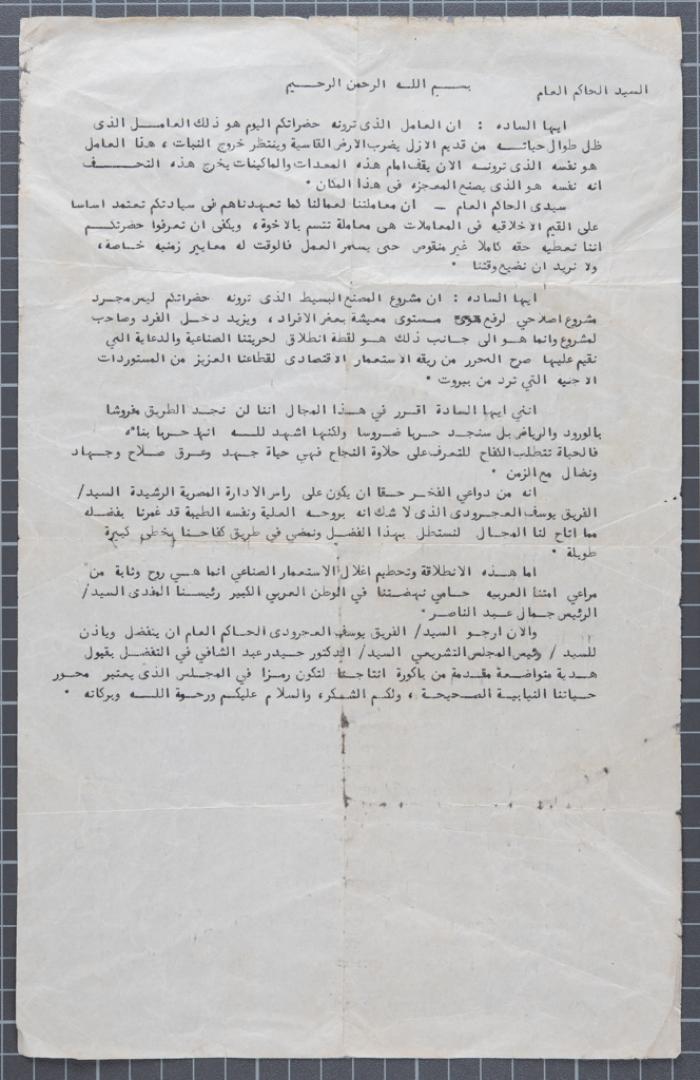 بسم الله الرحمن الرحيم
السيد الحاكم العام
ايها الساده : ان العامل الذى ترونه حضراتكم اليوم هو ذلك العامل الذى
ظل طوال حياته من قديم الازل يضرب الارض القاسية وينتظر خروج النبات ، هذا العامل
هو نفسه الذى ترونه الان يقف امام هذه المعدات والماكينات يخرج هذه التحف
انه نفسه هو الذى يصنع المعجزه فى هذا المكان .
سيدى الحاكم العام ــ ان معاملتنا لعمالنا كما تعهدناهم فى سيادتكم تعتمد اساسا
على القيم الاخلاقيه فى المعاملات هى معاملة تتسم بالاخوة ، ويكفى ان تعرفوا حضرتكم
اننا نعطيه حقه كاملا غير منقوص حتى يستمر العمل فالوقت له معايير زمنيه خاصة ،
ولا نريد ان نضيع وقتنا .
ايها الساده : ان مشروع المصنع البسيط الذى ترونه حضراتكم ليس مجرد
مشروع اصلاحي لرفع مستوى معيشة بعض الافراد ، ويزيد دخل الفرد وصاحب
لمشروع وانما هو الى جانب ذلك هو لقطة انطلاق لحريتنا الصناعية والدعاية التي
نقيم عليها صرح المحرر من ربقه الاستعمار الاقتصادى لقطاعنا العزيز من المستوردات
الاجنيه التي ترد من بيروت .
انني ايها السادة اقرر في هذا المجال اننا لن نجد الطريق مفروشا
بالورود والرياض بل سنجد حربا ضروسا ولكنها اشهد لله انها حربا بناءه
فالحياة تتطلب الكفاح للتعرف على حلاوة النجاح فهي حياة جهد وعرق صلاح وجهاد
ونضال مع الزمن .
انه من دواعي الفخر حقا ان يكون على راس الادارة المصرية الرشيدة السيد/
الفريق يوسف العجرودى الذى لا شك انه بروحه العلية ونفسه الطيبة قد غمرنا بفضله
مما اتاح لنا المجال لنستظل بهذا الفضل ونمضي في طريق كفاحنا بخطى كبيرة
طويلة .
اما هذه الانطلاقة وتحطيم اغلال الاستعمار الصناعي انما هي روح وثابة من
مراعي امتنا العربيه حامي نهضتنا في الوطن العربي الكبير رئيسنا المفدى السيد/
الرئيس جمال عبد الناصر .
والان ارجو السيد/ الفريق يوسف العجرودى الحاكم العام ان يتفضل وياذن
للسيد / رئيس المجلس التشريعي السيد/ الدكتور حيدر عبد الشافي في التفضل بقبول
هدية متواضعة مقدمة من باكورة انتاجنا لتكون رمزا في المجلس الذى يعتبر محور
حياتنا النيابية الصحيحة ، ولكم الشكر ، والسلام عليكم ورحمة الله وبركاته .